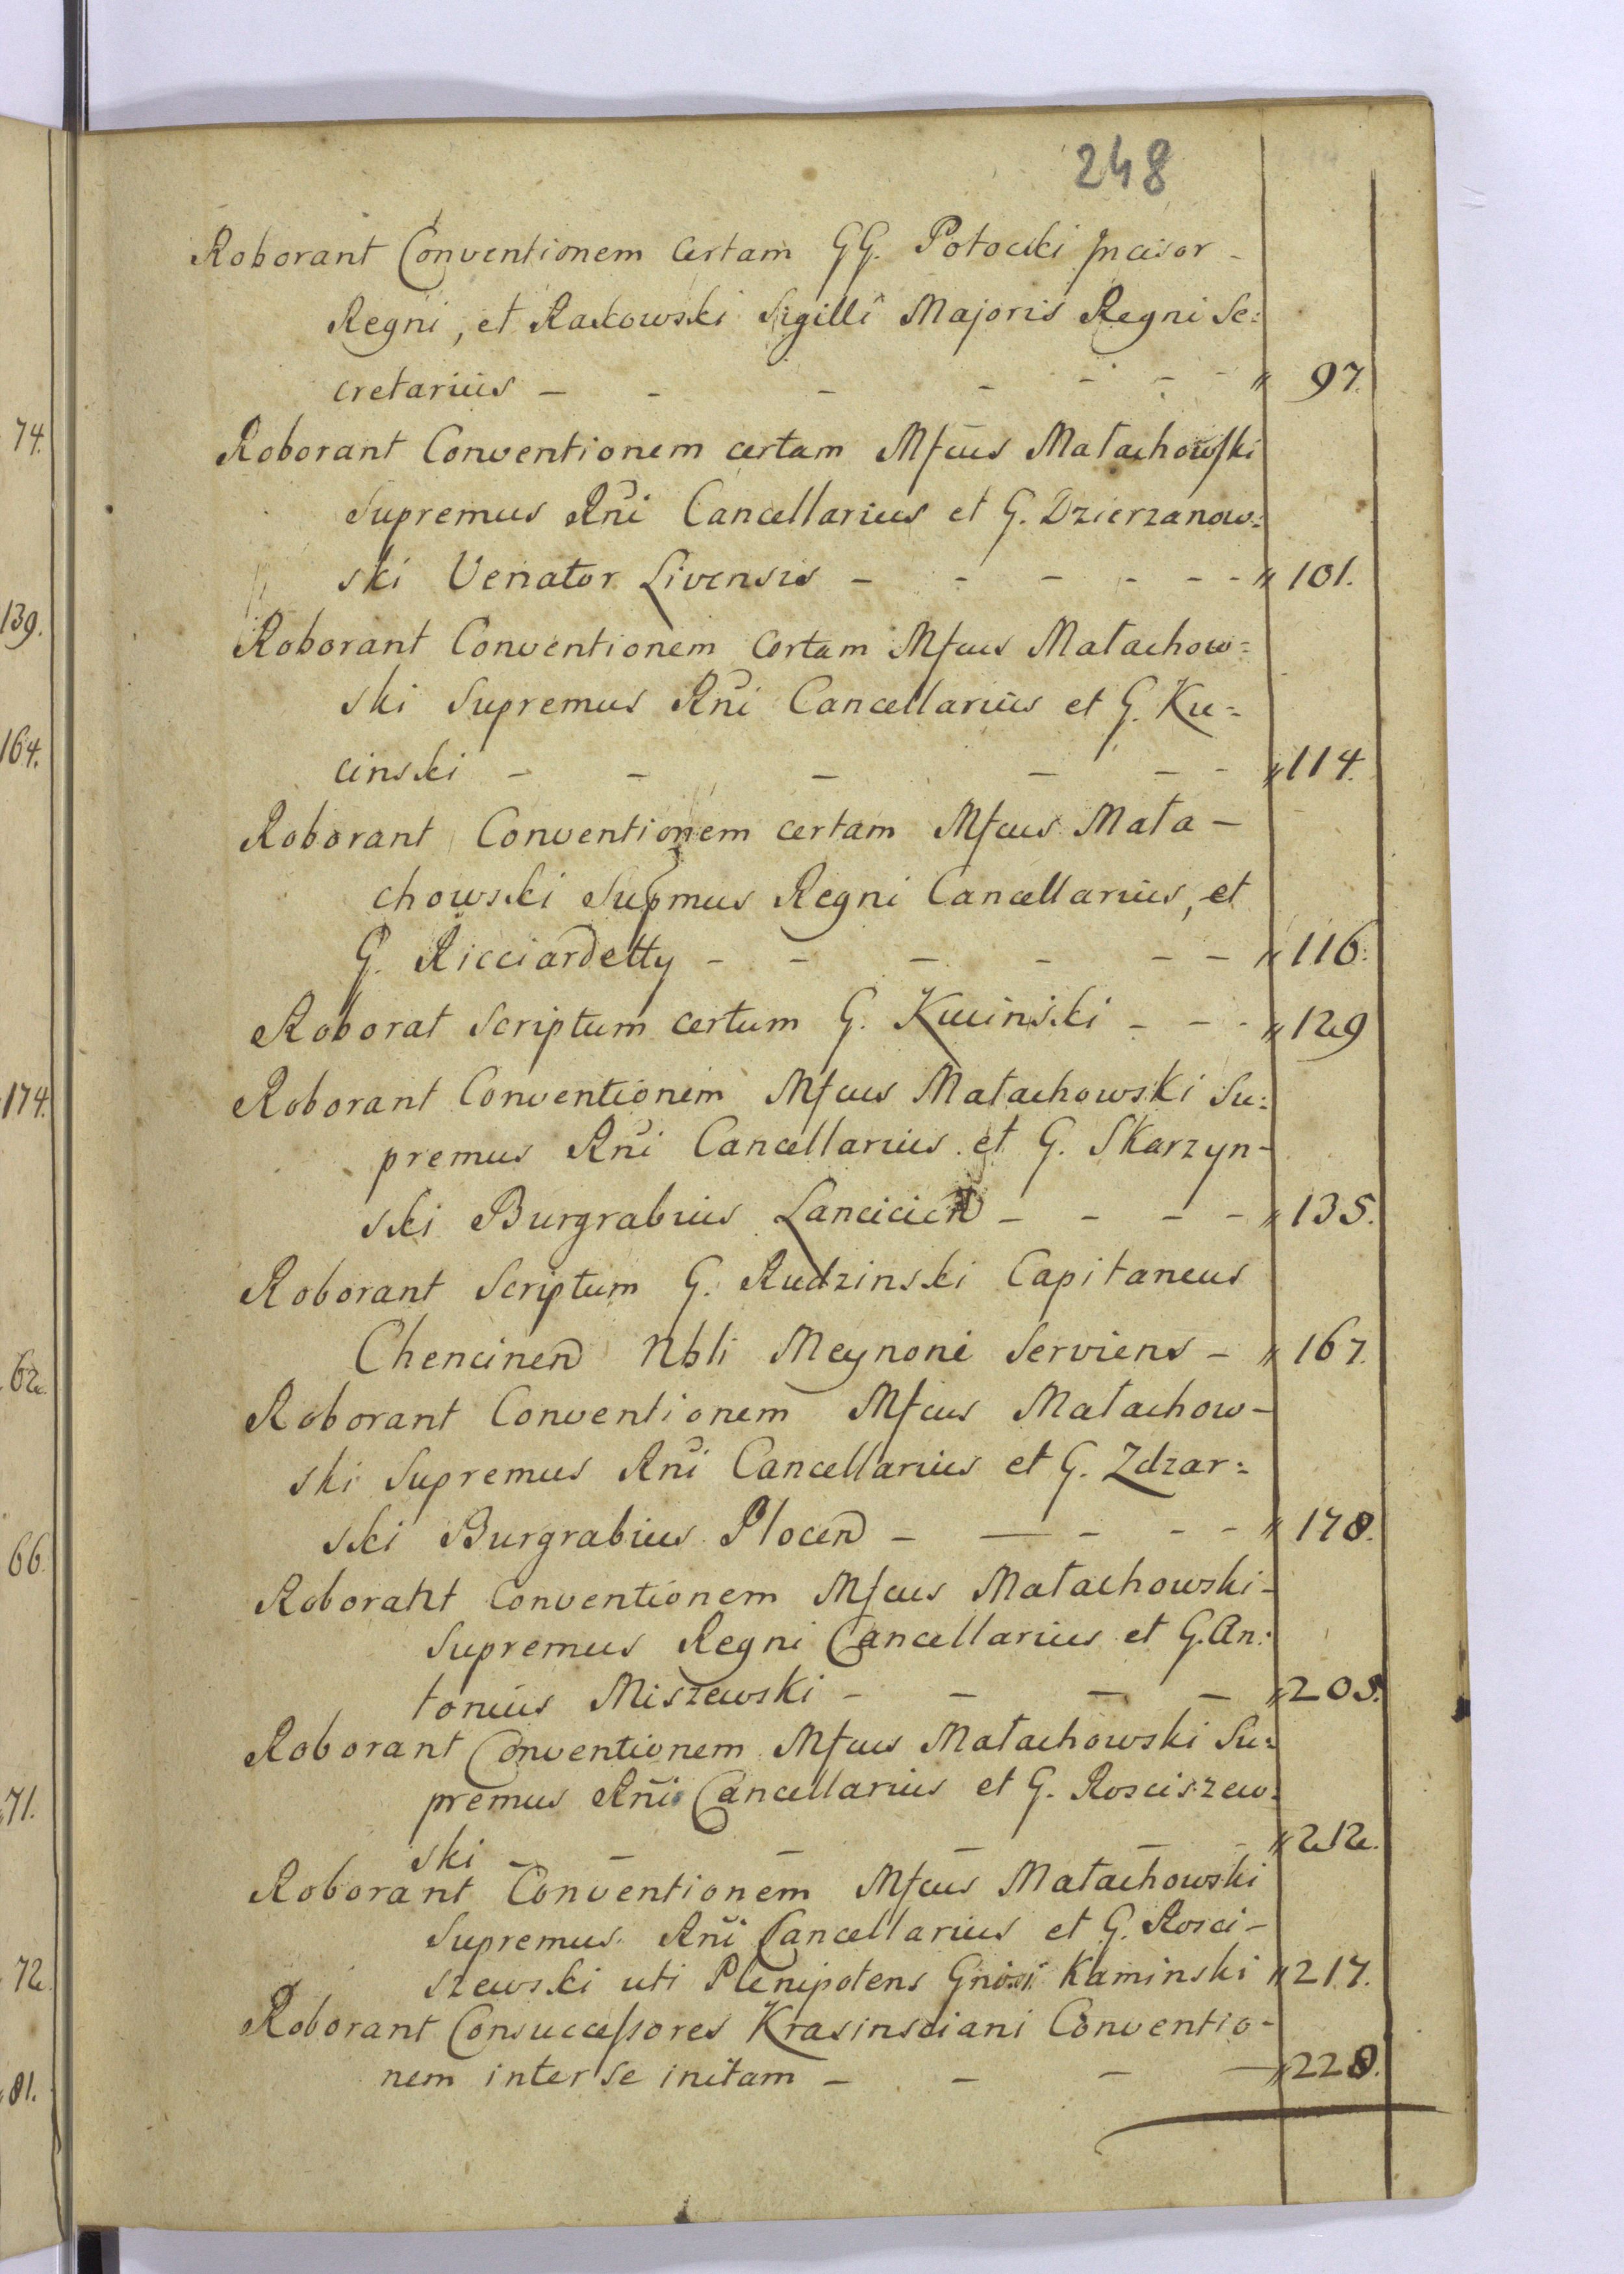 248
Roborant Conventionem certam GG. Potocki Incisor -
Regni, et Rakowski Sigilli Majoris Regni Se:
cretarius - - - - - - - " 97.
Roborant Conventionem certam Mfcus Małachowski
Supremus Rni Cancellarius et G. Dzierzanow:
ski Venator Livensis - - - - - - " 101.
Roborant Conventionem certam Mfcus Małachow:
ski Supremus Rni Cancellarius et G. Ku:
cinski - - - - - - " 114.
Roborant Conventionem certam Mfcus Mała -
chowski Supmus Regni Cancellarius, et
G. Ricciardetty - - - - - - " 116.
Roborat Scriptum certum G. Kucinski - - - " 129
Roborant Conventionem Mfcus Małachowski Su:
premus Rni Cancellarius et G. Skarzyn-
ski Burgrabius Lancicien - - - - " 135.
Roborant Scriptum G. Rudzinski Capitaneus
Chencinen Nbli Meynoni Serviens - " 167.
Roborant Conventionem Mfcus Małachow-
ski Supremus Rni Cancellarius et G. Zdzar:
ski Burgrabius Plocen - — - - - " 178.
Roborant Conventionem Mfcus Małachowski -
Supremus Regni Cancellarius et G. An:
tonius Miszewski - - - - " 205.
Roborant Conventionem Mfcus Małachowski Su:
premus Rni Cancellarius et G. Rosciszew:
ski - - - - - - " 212.
Roborant Conventionem Mfcus Małachowski
Supremus Rni Cancellarius et G. Rosci-
szewski uti Plenipotens Gnosi Kaminski " 217.
Roborant Consuccessores Krasinsciani Conventio-
nem inter se initam - - - - " 228.
74.
139.
164.
174.
62.
66.
71.
72
81.